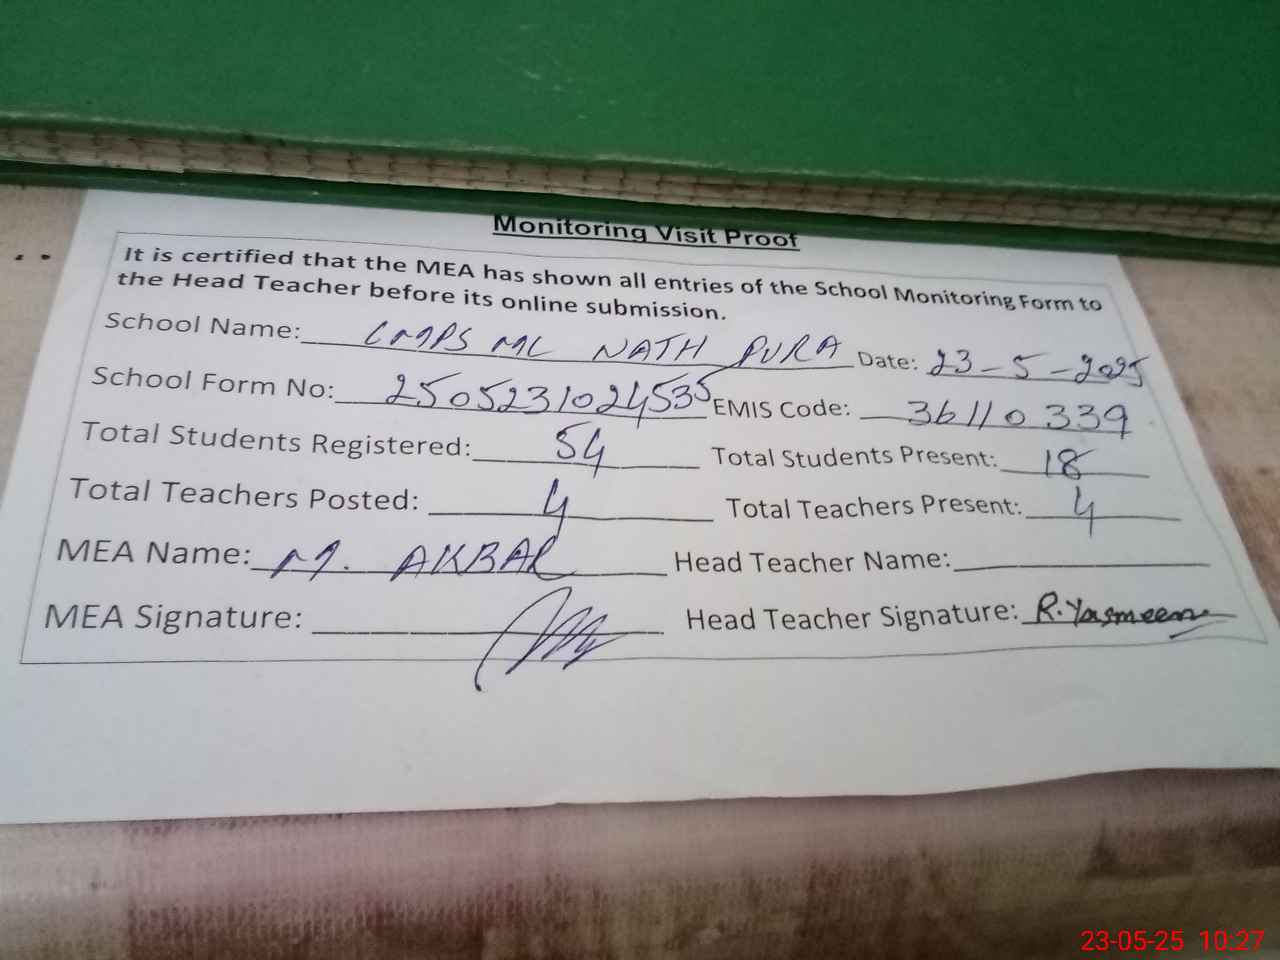 Monitoring Visit Proof
It is certified that the MEA has shown all entries of the School Monitoring Form to
the Head Teacher before its online submission.
School Name: GMPS MC NATH PURA Date: 23-5-2025
School Form No: 2505231024535 EMIS Code: 36110339
Total Students Registered: 54 Total Students Present: 18
Total Teachers Posted: 4 Total Teachers Present: 4
MEA Name: M. AKBAR Head Teacher Name:
MEA Signature: Head Teacher Signature: R.Yasmeen
23-05-25 10:27